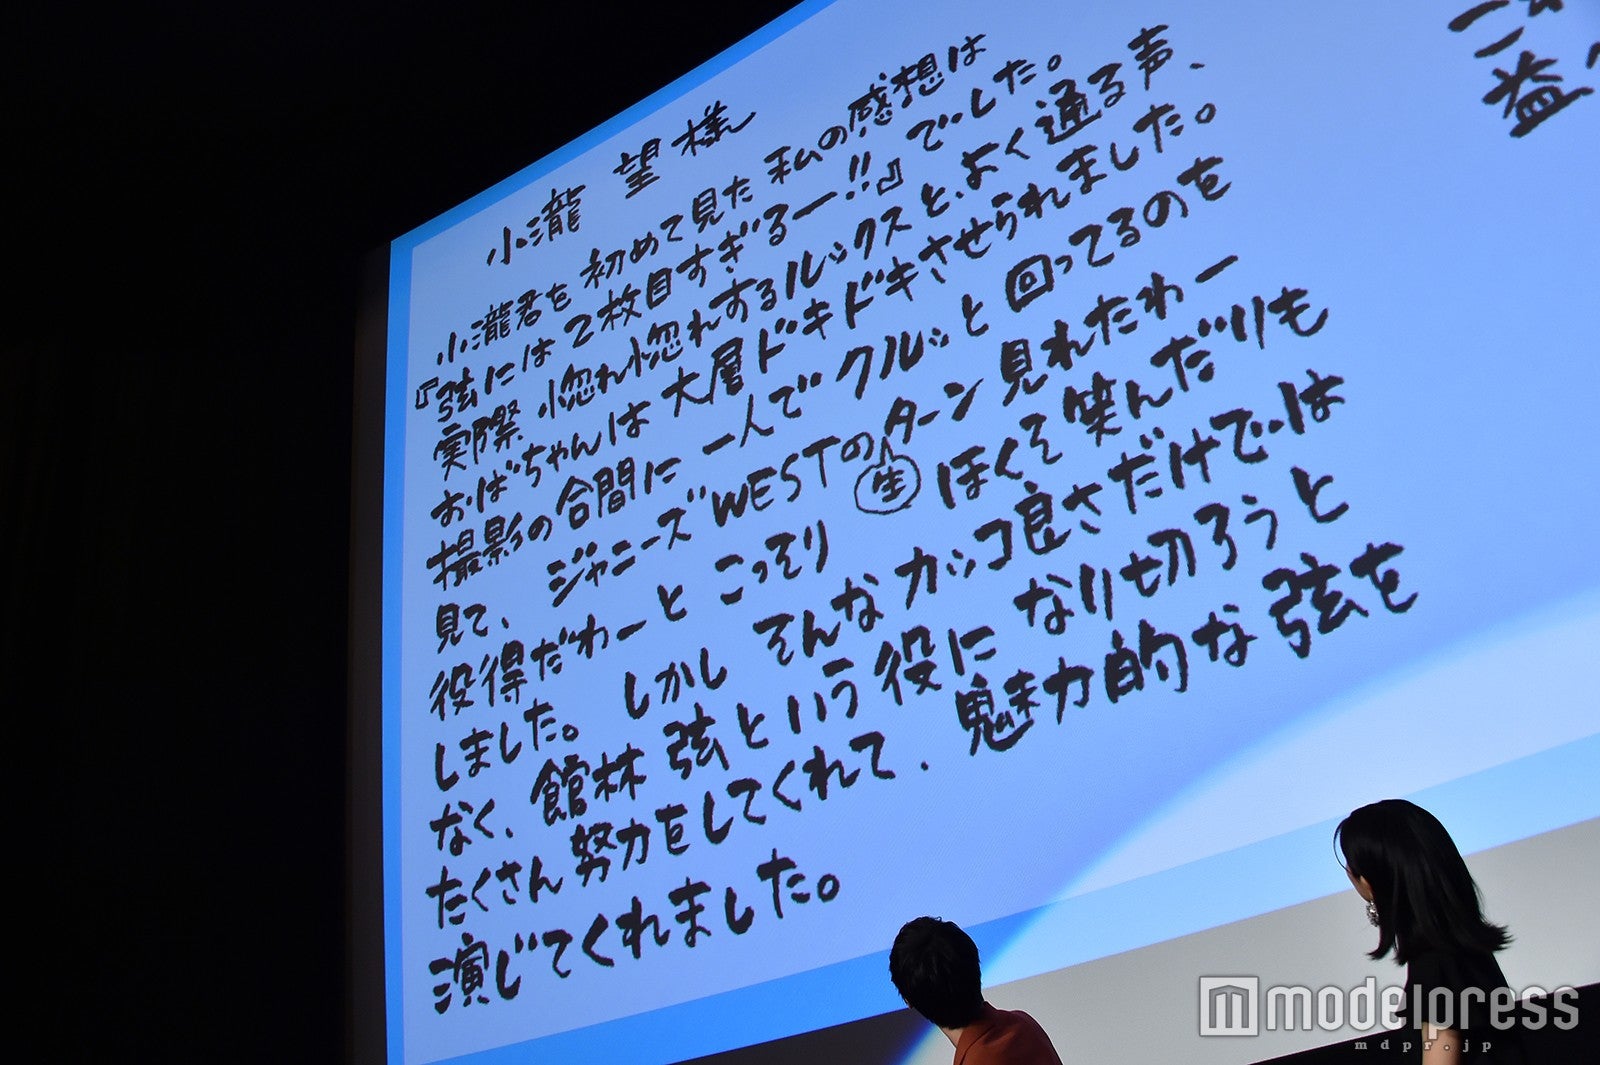 小瀧 望様
小瀧君を初めて見た私の感想は
『弦には2枚目すぎるー!!』でした。
実際 惚れ惚れするルックスと、よく通る声、
おばちゃんは大層ドキドキさせられました。
撮影の合間に一人でクルッと回ってるのを
見て、ジャニーズWESTの生ターン見れたわー
役得だわーとこっそりほくそ笑んだりも
しました。しかし そんなカッコ良さだけでは
なく、館林弦という役になり切ろうと
たくさん努力をしてくれて、魅力的な弦を
演じてくれました。
益
modelpress
mdpr.jp